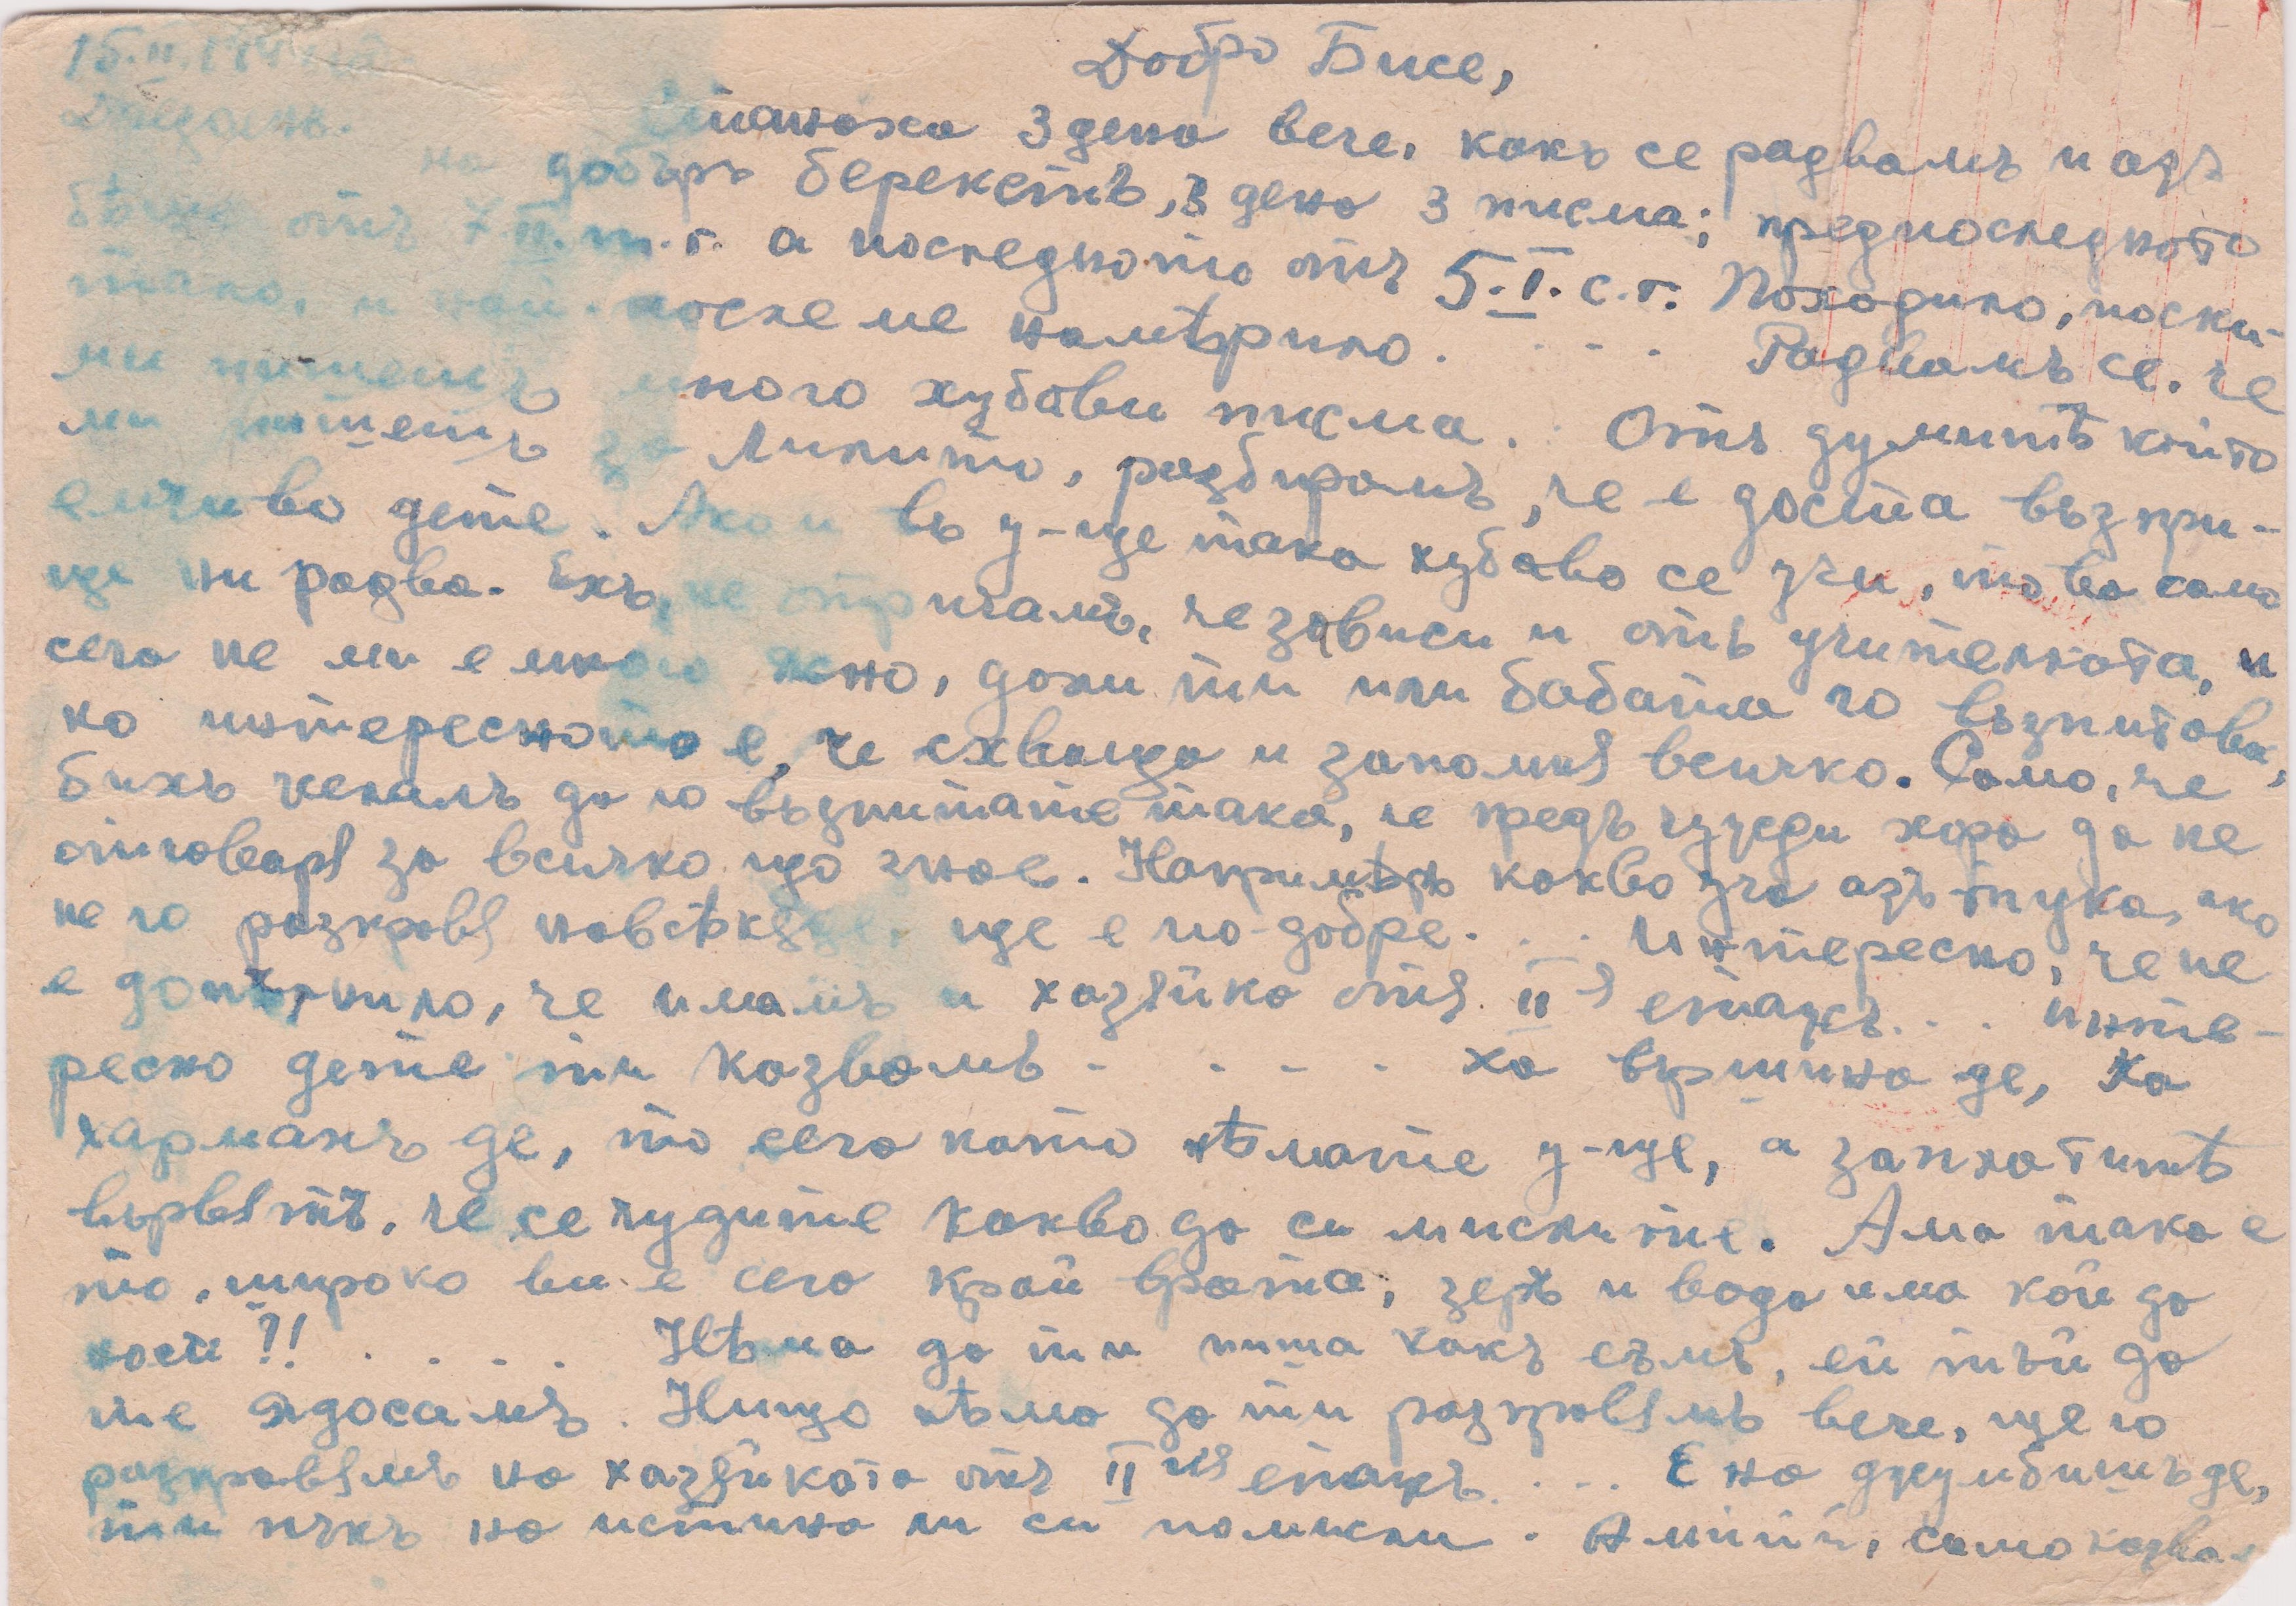 15.II.194
Добро Бисе,
Станаха 3 дена вече, какъ се радвамъ и азъ
на добъръ берекетъ, 3 дена 3 писма; предпоследното
бѣше отъ 7.II.т.г. а последното отъ 5.I.с.г. Походило, поски-
тало, и най-после ме намѣрило. . . . Радвамъ се, че
ми пишешъ много хубави писма. Отъ думитѣ който
ми пишешъ за Лилито, разбирамъ, че е доста възпри-
емчиво дете. Ако и въ у-ще така хубаво се учи, това само
ще ни радва. Ехъ, не отричамъ, че зависи и отъ учителката, и
сега не ми е много ясно, дали ти или бабата го възпитава,
но интересното е, че схваща и запомня всичко. Само, че
бихъ желалъ да го възпитате така, че предъ чужди хора да не
отговаря за всичко що знае. Напримѣръ какво уча азъ тука, ако
не го разправя навсѣкѫде, ще е по-добре. . . Интересно, че не
е допълнило, че имамъ и хазяйка отъ II-я етажъ. . . Инте-
ресно дете ти казвамъ - . - . ха вършина де, ха
харманъ де, то сега като нѣмате у-ще, а заплатитѣ
вървятъ, че се чудите какво да си мислите. Ама така е
то, широко ви е сега край врата, зеръ и вода има кой да
носи ?! . . . . Нѣма да ти пиша какъ съмъ, ей тъй да
те ядосамъ. Нищо нѣма да ти разправямъ вече, ще го
разправямъ на хазяйката отъ II-ия етажъ. . . . Е на джумбишъ де,
ти пъкъ на истина ли си помисли. Амиии, само казва